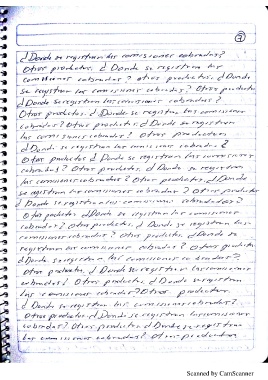 2
¿Donde se registran las comisiones cobradas?
Otros productos. ¿Donde se registran las
comisiones cobradas? otros productos. ¿Donde
se registran las comisiones cobradas? Otros productos
¿Donde se registran las comisiones cobradas?
Otros productos. ¿Donde se registran las comisiones
cobradas? Otros productos. ¿Donde se registran
las comisiones cobradas? Otros productos
¿Donde se registran las comisiones cobradas?
Otros productos ¿Donde se registran las comisiones
cobradas? Otros productos. ¿Donde se registran
las comisiones cobradas? Otros productos. ¿Donde
se registran las comisiones cobradas? Otros productos
¿Donde se registran las comisiones cobradas?
Otros productos ¿Donde se registran las comisiones
cobradas? otros productos. ¿Donde se registran las
comisiones cobradas? Otros productos ¿Donde se
registran las comisiones cobradas? Otros productos
¿Donde se registran las comisiones cobradas?
Otros productos. ¿Donde se registran las comisiones
cobradas? Otros productos ¿Donde se registran
las comisiones cobradas? Otros productos.
¿Donde se registran las comisiones cobradas?
Otros productos ¿Donde se registran las comisiones
cobradas? Otros productos ¿Donde se registran
las comisiones cobradas? Otros productos
Scanned by CamScanner